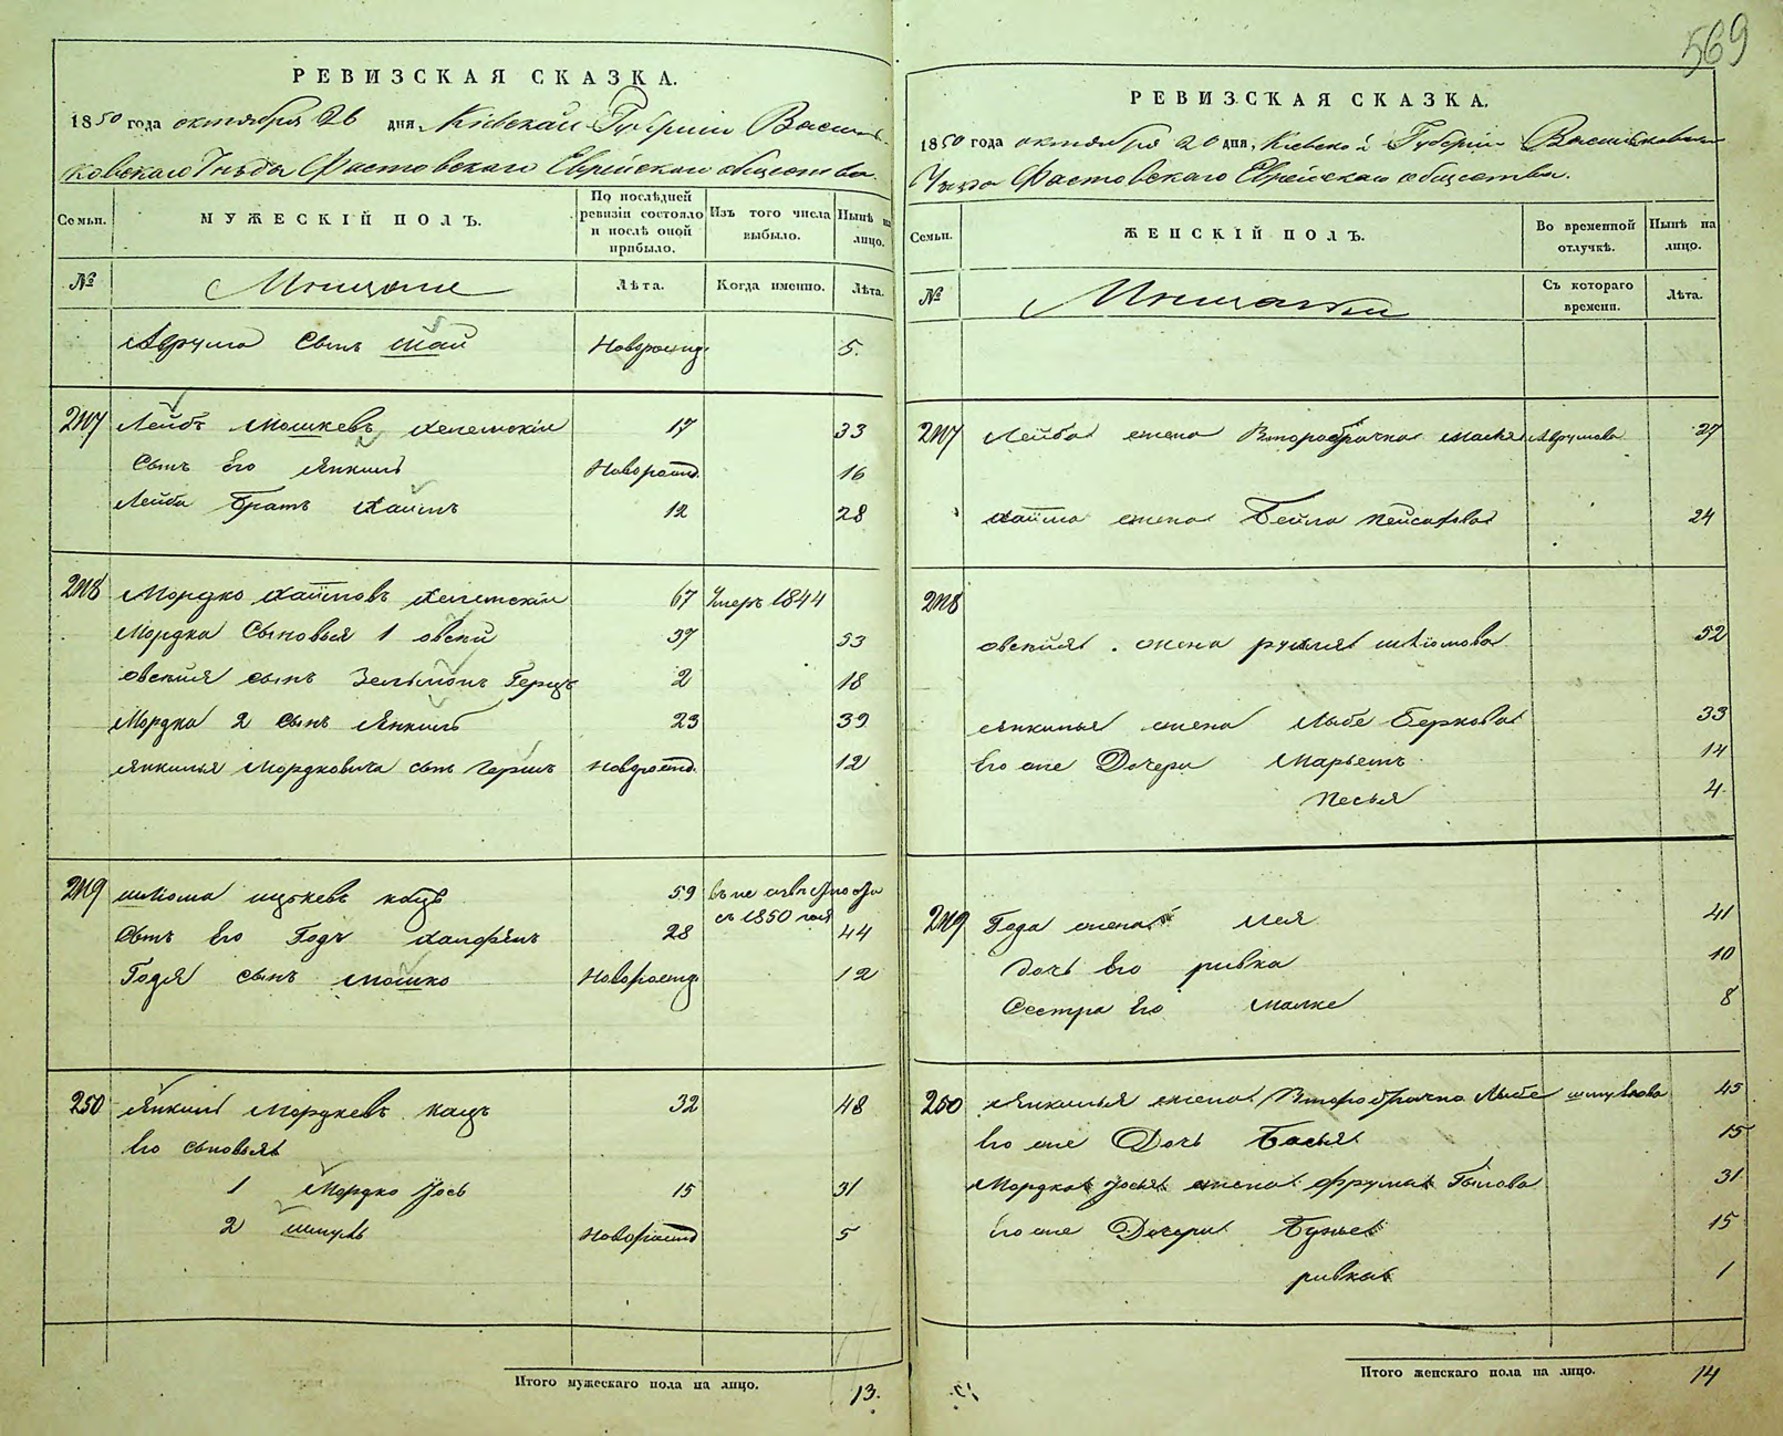 569
РЕВИЗСКАЯ СКАЗКА.
1850 года октября 26 дня, Кіевской Губерніи Василь-
ковскаго Уѣзда Фастовскаго Еврейскаго общества.
Семьи. МУЖЕСКІЙ ПОЛЪ. По послѣдней ревизіи состояло и послѣ оной прибыло. Изъ того числа выбыло. Нынѣ на лицо.
№ Мещане Лѣта. Когда именно. Лѣта.
Аврума Сынъ Шая Новорожд. 5.
247 Лейба Мошковъ 17 33
Сынъ Его Янкель Новорожд. 16
Лейбы братъ Хаимъ 12 28
248 Мордко Хаимовъ 67 Умеръ 1844
Мордка Сыновья 1 Овсей 37 53
Овсея сынъ Зельманъ Герцъ 2 18
Мордка 2 сынъ Янкель 23 39
Янкеля Мордковича сынъ Герш Новорожд. 12
249 Шлиома Ицковъ Кацъ 59
съ 1850 года
Сынъ Его Годя 28 44
Годя сынъ Мошко Новорожд. 12
250 Янкель Мордковъ Кацъ 32 48
Его сыновья
1 Мордко Іось 15 31
2 Шмуль Новорожд 5
Итого мужескаго пола на лицо. 13.
РЕВИЗСКАЯ СКАЗКА.
1850 года октября 26 дня, Кіевской Губерніи Васильковскаго
Уѣзда Фастовскаго Еврейскаго общества.
Семьи. ЖЕНСКІЙ ПОЛЪ. Во временной отлучкѣ. Нынѣ на лицо.
№ Мещанки Съ котораго времени. Лѣта.
247 Лейбы жена Второбрачна Аврумова 27
Хаима жена Бейла Пейсахова 24
248
Овсея жена Рухля Шліомова 52
Янкеля жена Лыбе Беркова 33
Его же Дочери Марьемъ 14
Песья 4
249 Годя жена Лея 41
Дочь Его Ривка 10
Сестра Его Малке 8
250 Янкеля жена Второбрачна Лыбе Шмулева 45
Его же Дочь Басья 15
Мордка Іося жена Фрума 31
его же Дочери Бунье 15
Ривка 1
Итого женскаго пола на лицо. 14